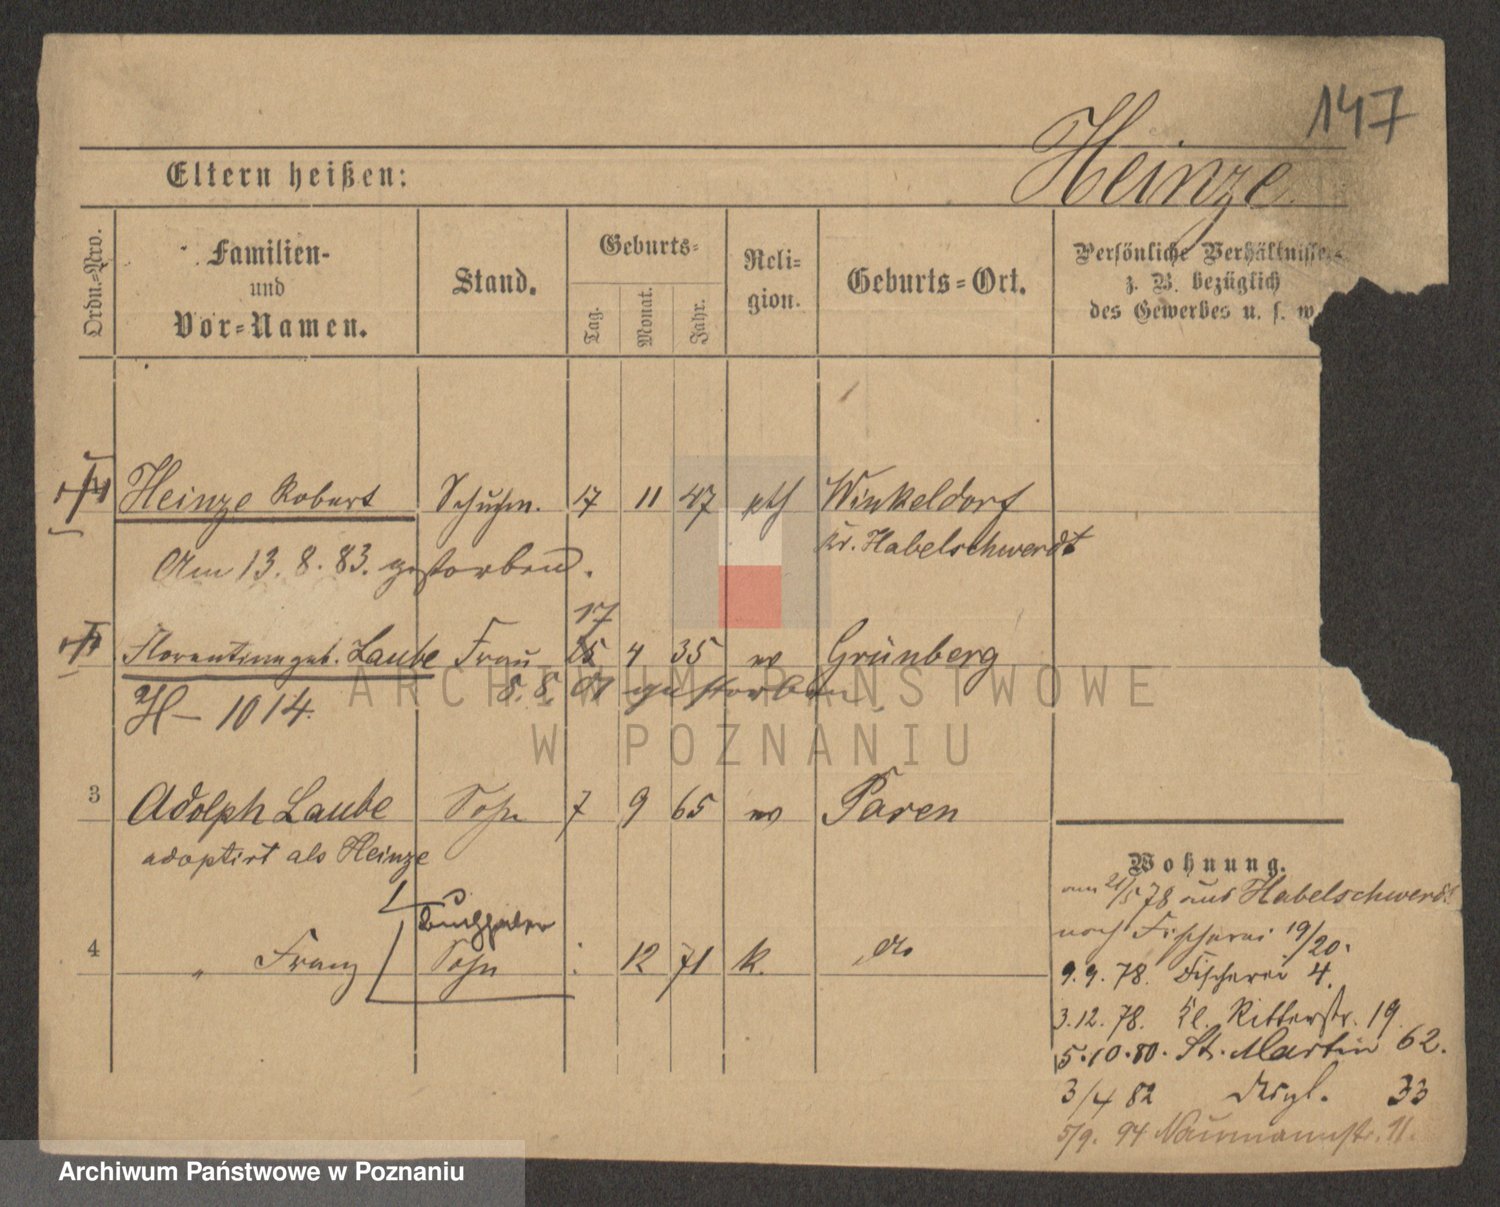 147
Heinze
Eltern heißen:
Ordn.-Nro.
Familien-
und
Vor-Namen.
Stand.
Geburts-
Tag.
Monat.
Jahr.
Reli-
gion.
Geburts-Ort.
Persönliche Verhältnisse
z. B. bezüglich
des Gewerbes u. s. w.
Heinze Robert Schuhm. 17 11 47 kth Winkeldorf
Kr. Habelschwerdt
Am 13. 8. 83. gestorben.
17
Florentine geb. Laube Frau 25 4 35 ev Grünberg
H - 1014. 8. 8. 01 gestorben
3 Adolph Laube Sohn 7 9 65 ev Paren
adoptirt als Heinze
Buchhalter
4 " Franz Sohn : 12 71 k. do
Wohnung.
am 21/5 78 aus Habelschwerdt
nach Fischerei 19/20.
9. 9. 78. Fischerei 4.
3. 12. 78. Kl. Ritterstr. 19.
5. 10. 80. St. Martin 62.
3/4 82 desgl. 33
5/9. 94 Naumannstr. 11.
ARCHIWUM PAŃSTWOWE
W POZNANIU
Archiwum Państwowe w Poznaniu